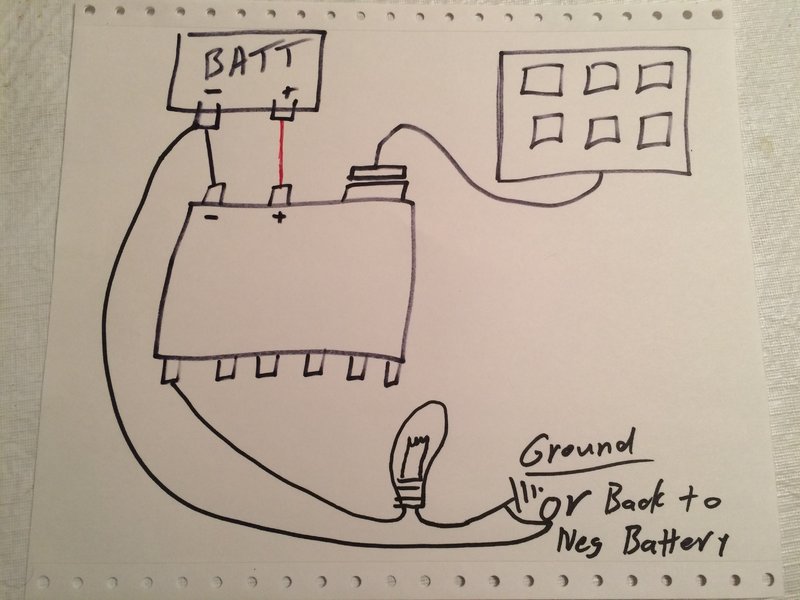 BATT
- +
- +
Ground
Or Back to
Neg Battery